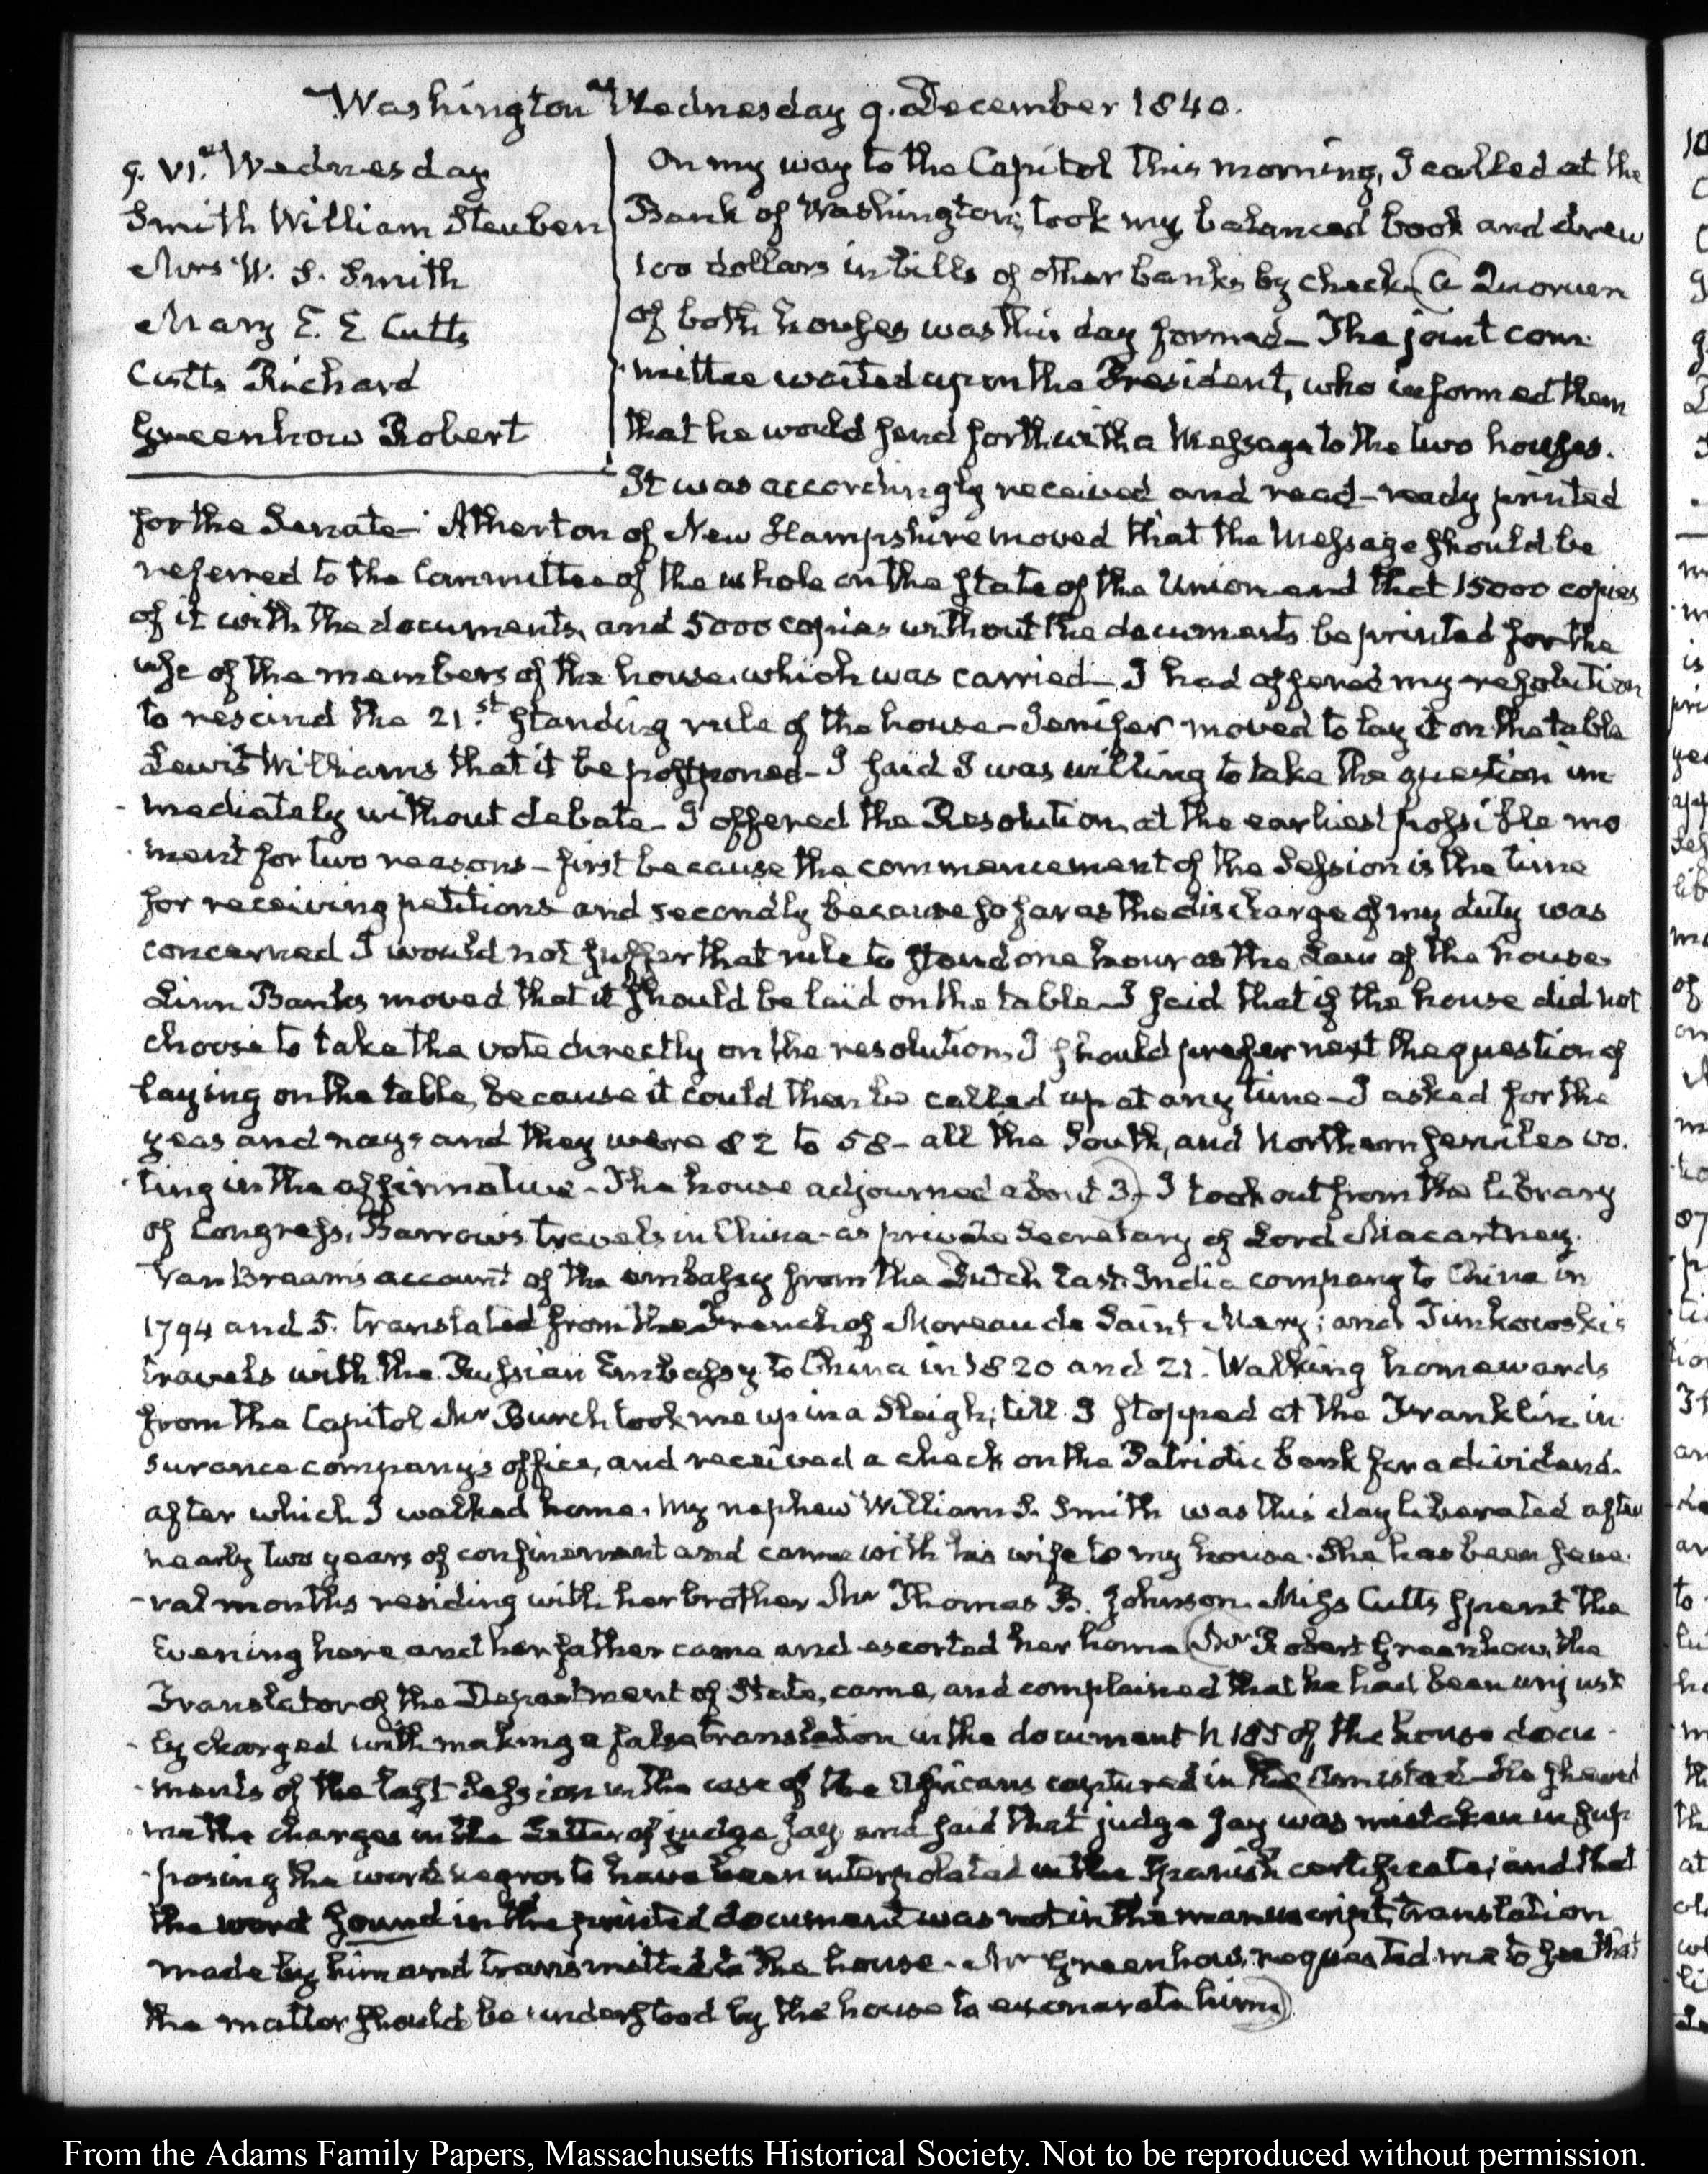 Washington Wednesday 9. December 1840.
9. VI. Wednesday
Smith William Steuben
Mrs W. S. Smith
Mary E. E Cutts
Cutts Richard
Greenhow Robert
On my way to the Capitol this morning, I called at the
Bank of Washington; took my balanced book and drew
100 dollars in bills of other banks by check. A Quorum
of both houses was this day formed— The joint com
mittee waited upon the President, who informed them
that he would send forthwith a Message to the two houses.
It was accordingly received and read— ready printed
for the Senate— Atherton of New Hampshire moved that the Message should be
referred to the Committee of the whole on the state of the Union and that 15000 copies
of it with the documents, and 5000 copies without the documents be printed for the
use of the members of the house. which was carried— I had offered my resolution
to rescind the 21.st standing rule of the house— Jenifer moved to lay it on the table
Lewis Williams that it be postponed— I said I was willing to take the question im
mediately without debate— I offered the Resolution, at the earliest possible mo
ment for two reasons— first because the commencement of the Session is the time
for receiving petitions and secondly because so far as the discharge of my duty was
concerned I would not suffer that rule to stand one hour as the Law of the house.
Linn Banks moved that it should be laid on the table— I said that if the house did not
choose to take the vote directly on the resolution, I should prefer next the question of
laying on the table, because it could then be called up at any time— I asked for the
yeas and nays and they were 82 to 58— all the South, and Northern serviles vo.
ting in the affirmative— The house adjourned about 3.— I took out from the library
of Congress, Barrow's travels in China— as private Secretary of Lord Macartney.
Van Braam's account of the embassy from the Dutch East India company to China in
1794 and 5. translated from the French of Moreau de Saint Mery; and Timkowski's
travels with the Russian Embassy to China in 1820 and 21. Walking homewards
from the Capitol Mr Burch took me up in a Sleigh; till I stopped at the Franklin in
surance company's office, and received a check on the Patriotic bank for a dividend.
after which I walked home. My nephew William S. Smith was this day liberated after
nearly two years of confinement and came with his wife to my house. She has been seve
ral months residing with her brother Mr Thomas B. Johnson. Miss Cutts spent the
Evening here and her father came and escorted her home. Mr Robert Greenhow, the
Translator of the Department of State, came, and complained that he had been unjust
ly charged with making a false translation in the document N 185 of the house docu
ments of the last Session in the case of the Africans captured in the Amistad— He shewed
me the charges in the Letter of judge Jay and said that judge Jay was mistaken in sup
posing the words negros to have been interpolated in the Spanish certificate; and that
the word sound in the printed document was not in the manuscript, translation
made by him and transmitted to the house— Mr Greenhow, requested me to see that
the matter should be understood by the house to exonerate him.
From the Adams Family Papers, Massachusetts Historical Society. Not to be reproduced without permission.